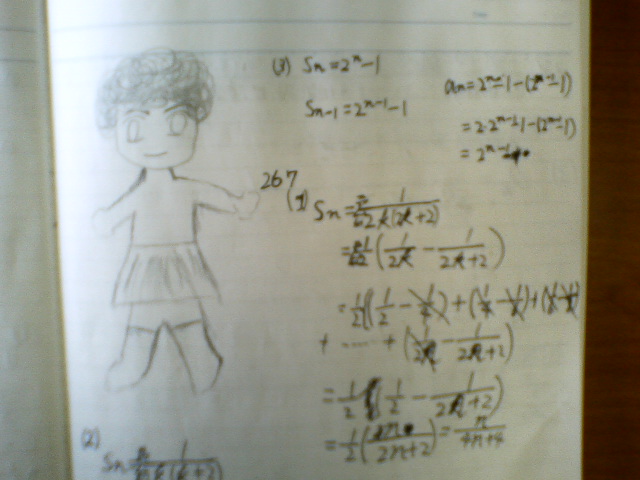 (3) Sn = 2^n - 1
Sn-1 = 2^(n-1) - 1
an = 2^n - 1 - (2^(n-1) - 1)
= 2·2^(n-1) - 1 - (2^(n-1) - 1)
= 2^(n-1)
267
(1) Sn = Σ 1/(2k(2k+2))
= Σ 1/2 (1/2k - 1/(2k+2))
= 1/2 ((1/2 - 1/4) + (1/4 - 1/6) + (1/6 - 1/8)
+ ...... + ( - 1/(2n+2))
= 1/2 (1/2 - 1/(2n+2))
= 1/2 ( /(2n+2)) = n/(4n+4)
(2)
Sn = Σ 1/(k(k+2))